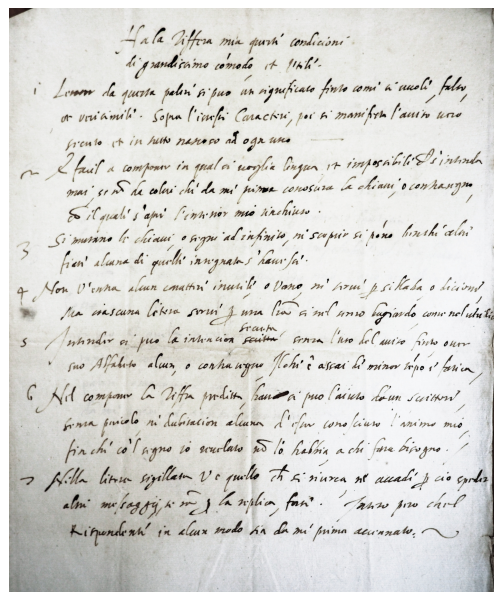 Ha la Ziffera mia questi condicioni
di grandissimo comodo et utili.
1 da questa potrà si può un significato finto come si vuoli, falso,
et verisimili. Sopra l'istessi Caratteri, poi si manifesta l'aviso vero
secreto et in tutto nascoso ad ogn'uno
2 È facil a componer in qual si voglia lingua, et impossibili d'intender
mai, se nõ da coloro chi da mi prima conoscerà la chiavi, o contrasegno,
il quali s'apri l'intentior mio rinchiuso.
3 Si mutano le chiavi o segni ad infinito, ni scoprir si pono benchi
alcuna di quelli insegnata s'havessi.
4 Non v'entra alcun carattiri inutili o vano, ni servi p sillaba o dicioni,
ma ciascuna litera servi p una sì nel verso bugiardo come nel
5 Intender si può la intencion secreta senza l'uso del aviso finto over
suo Alfabeto alcun, o contrasegno è assai di minor tẽpo e fatica,
6 Nel componer la Ziffra preditta si può l'aiuto d'un scrittor,
senza pericolo ni dubitation alcuna d'esser conosciuto l'animo mio,
finchi co'l segno io revelato nõ lo habbia a chi farà bisogno.
7 Nella litera sigillata v'è quello chi si ricerca nè accadi p ciò spedir
altri messaggi, se nõ p la replica, farsi. però ch'el
Rispondenti in alcun modo sia da mi prima accennato.